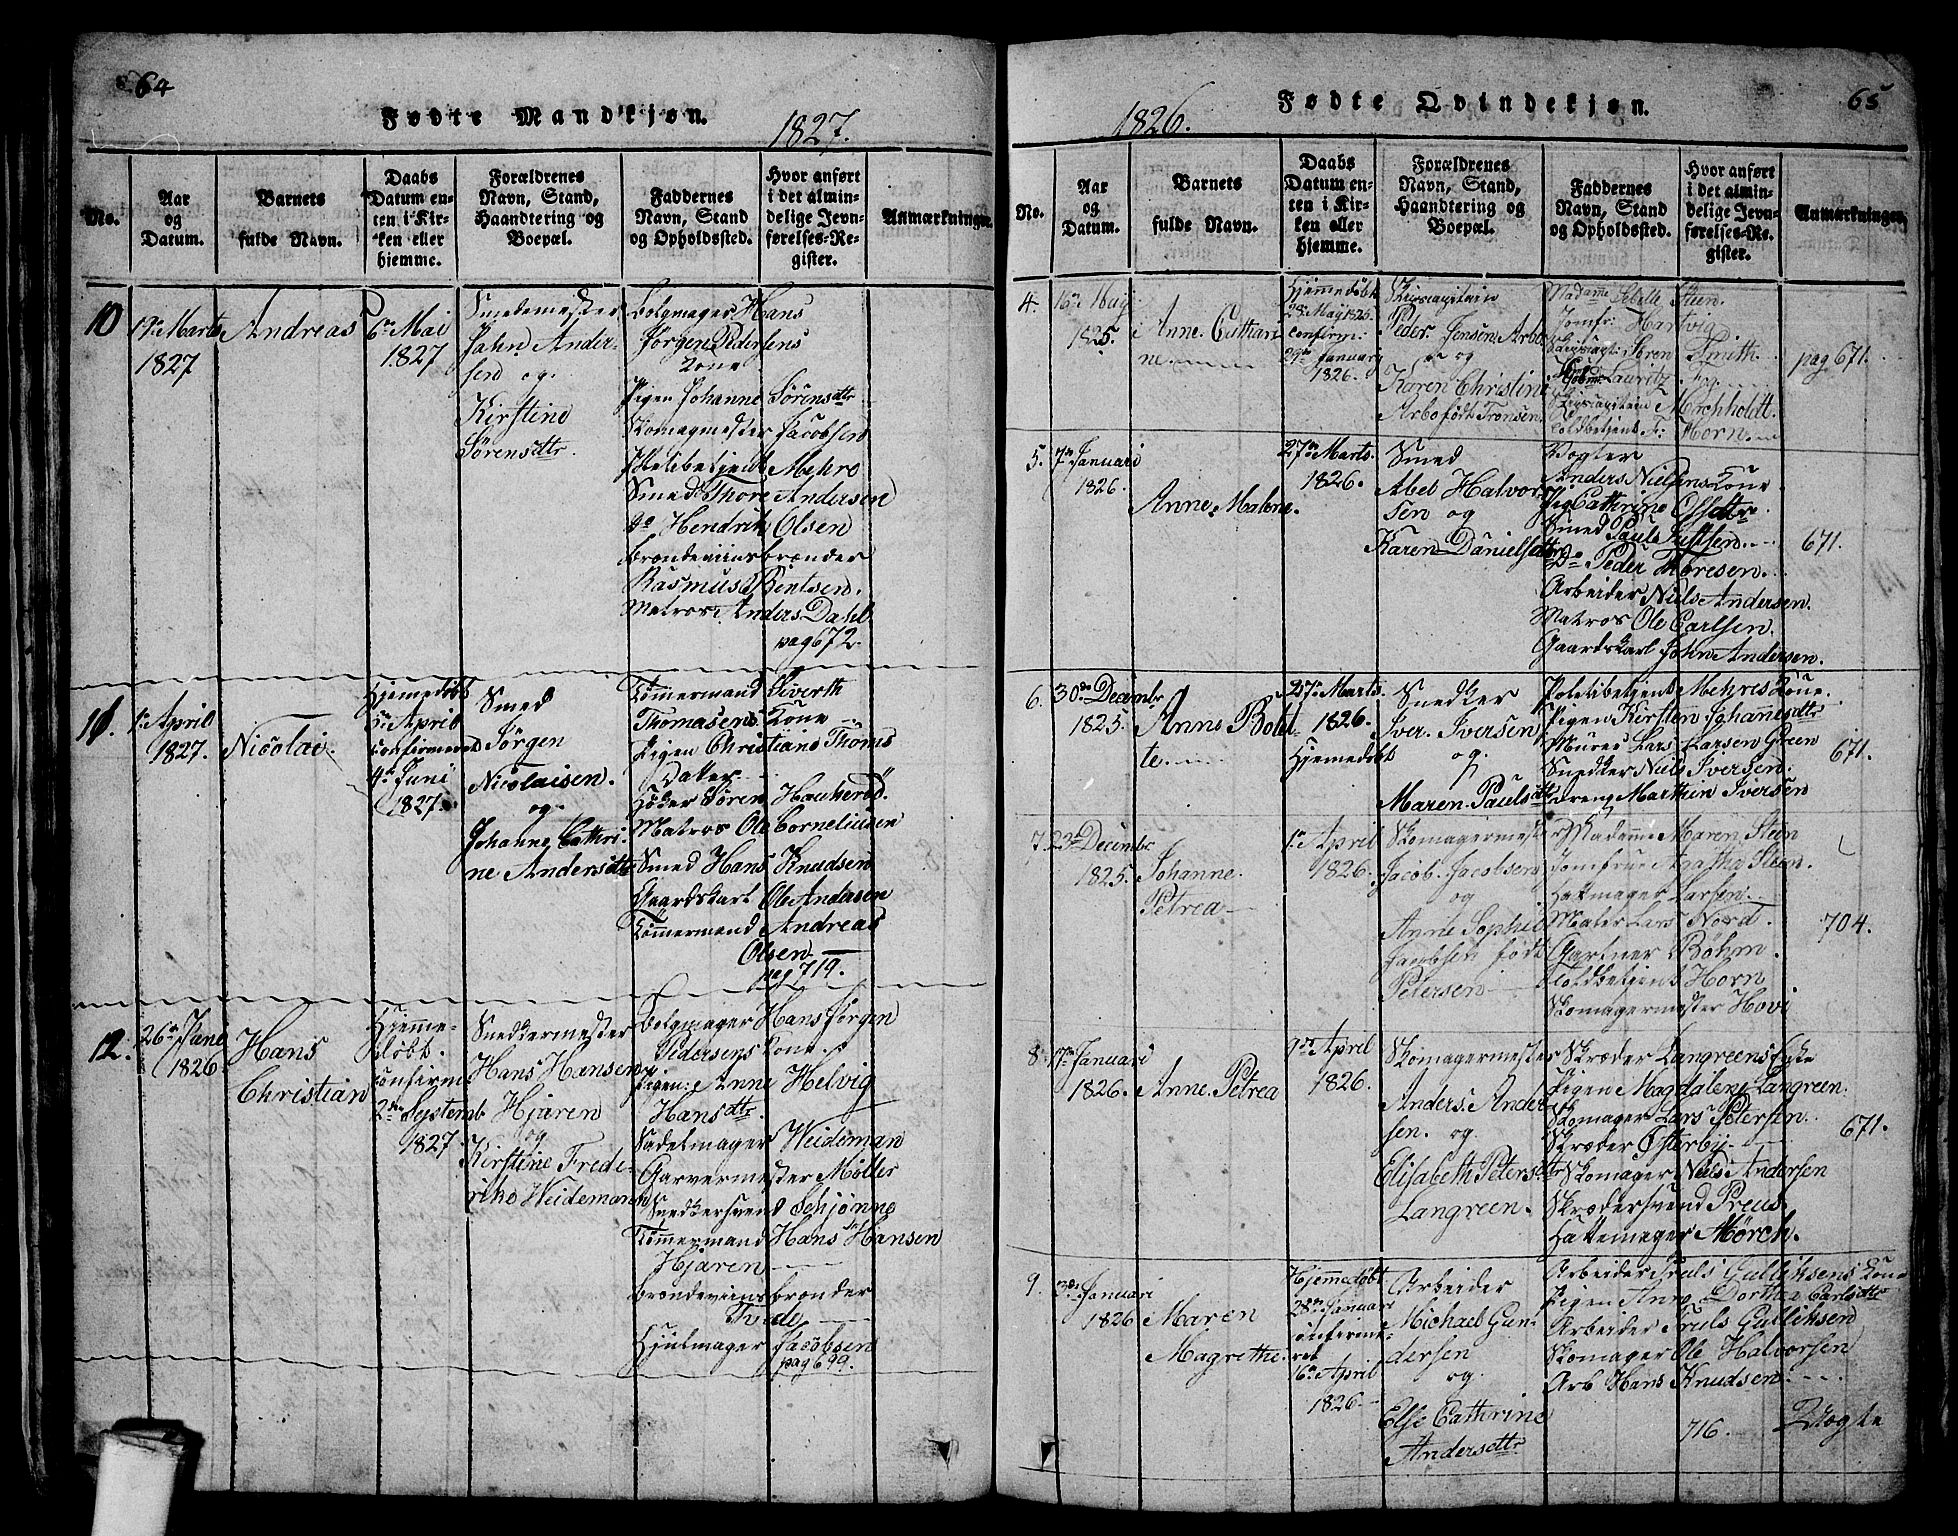 64
Fødte Mandkjøn.
1827.
No.
Aar
og
Datum.
Barnets
fulde Navn.
Daabs
Datum en-
ten i Kir-
ken eller
hjemme.
Forældrenes
Navn, Stand,
Haandtering og
Boepæl.
Faddernes
Navn, Stand
og Opholdssted.
Hvor anført
i det almin-
delige Jevn-
førelses-Re-
gister.
Anmærkninger.
10
19de Marts
1827
Andreas
6te Mai
1827
Smedemester
John Ander-
sen og
Kirstine
Sørensdttr.
Bolgmager Hans
Jørgen Pedersens
Kone
Pigen Johanne Sørensdttr
Skomagmester Jacobsen
Politibetjent Mehre
Smed Thore Andersen
do Hendrik Olsen
Brændeviinsbrænder
Rasmus Bentsen.
Matros Anders Dahl
pag 672.
11.
1te April
1827.
Nicolai.
Hjemedøbt
5te April
confirmered
4de Juni
1827.
Smed
Jørgen
Nicolaisen.
og
Johanne Cathri-
ne Andersdttr
Tømmermand Siverth
Thomasens Kone
Pigen Christiane Thoms
Datter
Søren Hauherød.
Matros Ole Corneliussen
Smed Hans Knudsen
Gaardskarl Ole Andersen
Tømmermand Andreas
Olsen
pag 719.
12.
26de
1826
Hans
Christian
Hjemme-
døbt.
confirm.
2den Septemb
1827
Snedkermester
Hans Hansen
Hjaren
og
Kirstine Frede-
rike Weidemann
Bolgmager Hans Jørgen
Pedersens Kone.
Pigen Anne Helvig
Hansdttr.
Sadelmager Weideman
Garvermester Møller
Snedkersvend Schjønne
Tømmermand Hans Hansen
Hjaren
Brændeviinsbrænder
Hjulmager Jacobsen
pag 699.
65
Fødte Qvindekjøn.
1826.
No.
Aar
og
Datum.
Barnets
fulde Navn.
Daabs
Datum en-
ten i Kir-
ken eller
hjemme.
Forældrenes
Navn, Stand,
Haandtering og
Boepæl.
Faddernes
Navn, Stand
og Opholdssted.
Hvor anført
i det almin-
delige Jevn-
førelses-Re-
gister.
Anmærkninger.
4.
16de May
1825.
Anne Cathari
ne.
Hjemmedøbt
28de May 1825.
confirm:
January
1826.
Skipscapitain
Peder Jensen Arbo
og
Karen Christine
Arbo født Tronsen.
Madame Sibille Steen.
Jomfr: Hartvig
Søren Smith.
Lauritz
Skipscapitain Michholdt.
Toldbetjent F: Horn.
pag 671.
5.
7de Januari
1826.
Anne Malene.
27de Marts.
1826.
Smed
Abel Halvor-
sen og
Karen Danielsdttr
Anders Nielsens Kone
Pig. Cathrine
Smed Paul
Do Peder Thoresen.
Arbeider Niels Andersen.
Matros Ole Carlsen.
Gaardskarl John Andersen.
671.
6.
30de Decembr
1825.
Anne Bolet-
te.
27de Marts.
1826.
Hjemedøbt
Snedker
Iver Iversen
og
Maren Paulsdttr
Politibetjent Mehres Kone.
Pigen Kirsten Johannesdttr
Murer Lars Larsen Green
Snedker Niels Iversen.
dreng Marthin Iversen
671.
7.
23de Decembr
1825.
Johanne
Petrea
1te April
1826.
Skomagermester
Jacob Jacobsen
og
Anne Sophie
Jacobsen født
Petersen
Madame Maren Steen
Jomfrue Agathe Steen.
Hattmager Larsen.
Lars Nord.
Gartner Bøhm
Toldbetjent Horn
Skomagermester Hovi
704.
8.
17de Januari
1826.
Anne Petrea
9de April
1826.
Skomagermester
Anders Ander
sen. og
Elisabeth Petersdttr
Langreen.
Skræder Langreens Enke
Pigen Magdalene Langreen.
Skomager Lars Petersen.
Skræder Østerby.
Skomager Niels Andersen
Skrædersvend Preus.
Hattemager Mørch.
671.
9.
3die Januari
1826
Maren
Magrethe.
Hjemmedøbt
28de Januari
confirme-
ret
16de April
1826.
Arbeider
Michael Gun-
dersen
og
Else Cathrine
Andersdttr
Arbeider Truls Gulliksens Kone
Pigen Anne Dorthea Carlsdttr
Arbeider Truls Gulliksen
Skomager Ole Halvorsen
Arb Hans Knudsen.
716.
Uægte